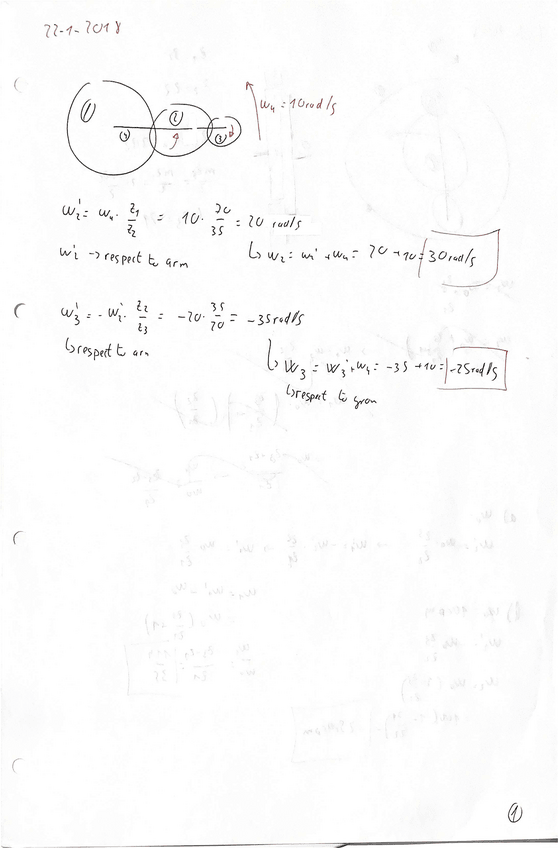 22-1-2018
1
2
3
4
w4 = 10rad/s
w2' = w4 · z1/z2 = 10 · 70/35 = 20 rad/s
w2' → respect to arm
↳ w2 = w2' + w4 = 20 + 10 = 30rad/s
w3' = - w2' · z2/z3 = -20 · 35/20 = -35rad/s
↳ respect to arm
↳ w3 = w3' + w4 = -35 + 10 = -25rad/s
↳ respect to
1